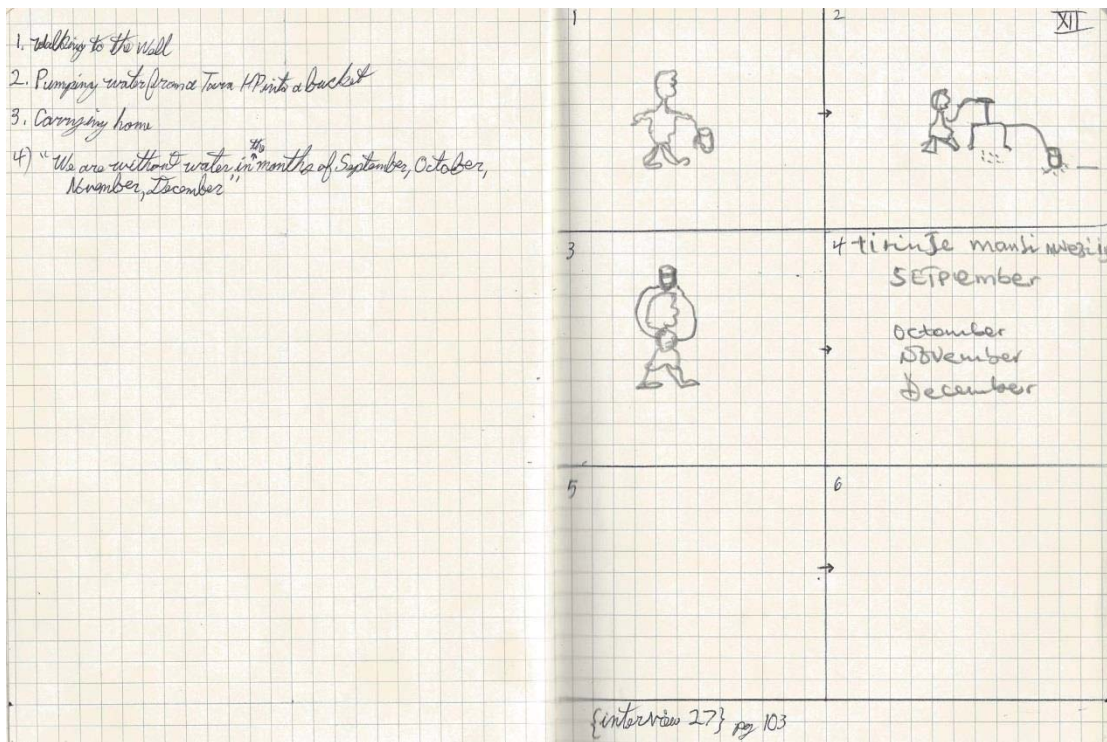 1. Walking to the Well
2. Pumping water from a Tara HP into a bucket
3. Carrying home
4) "We are without water in the months of September, October,
November, December"
1
2
XII
3
4 tirinje mansi mwezi
SETPember
octomber
November
December
5
6
{interview 27} pg 103